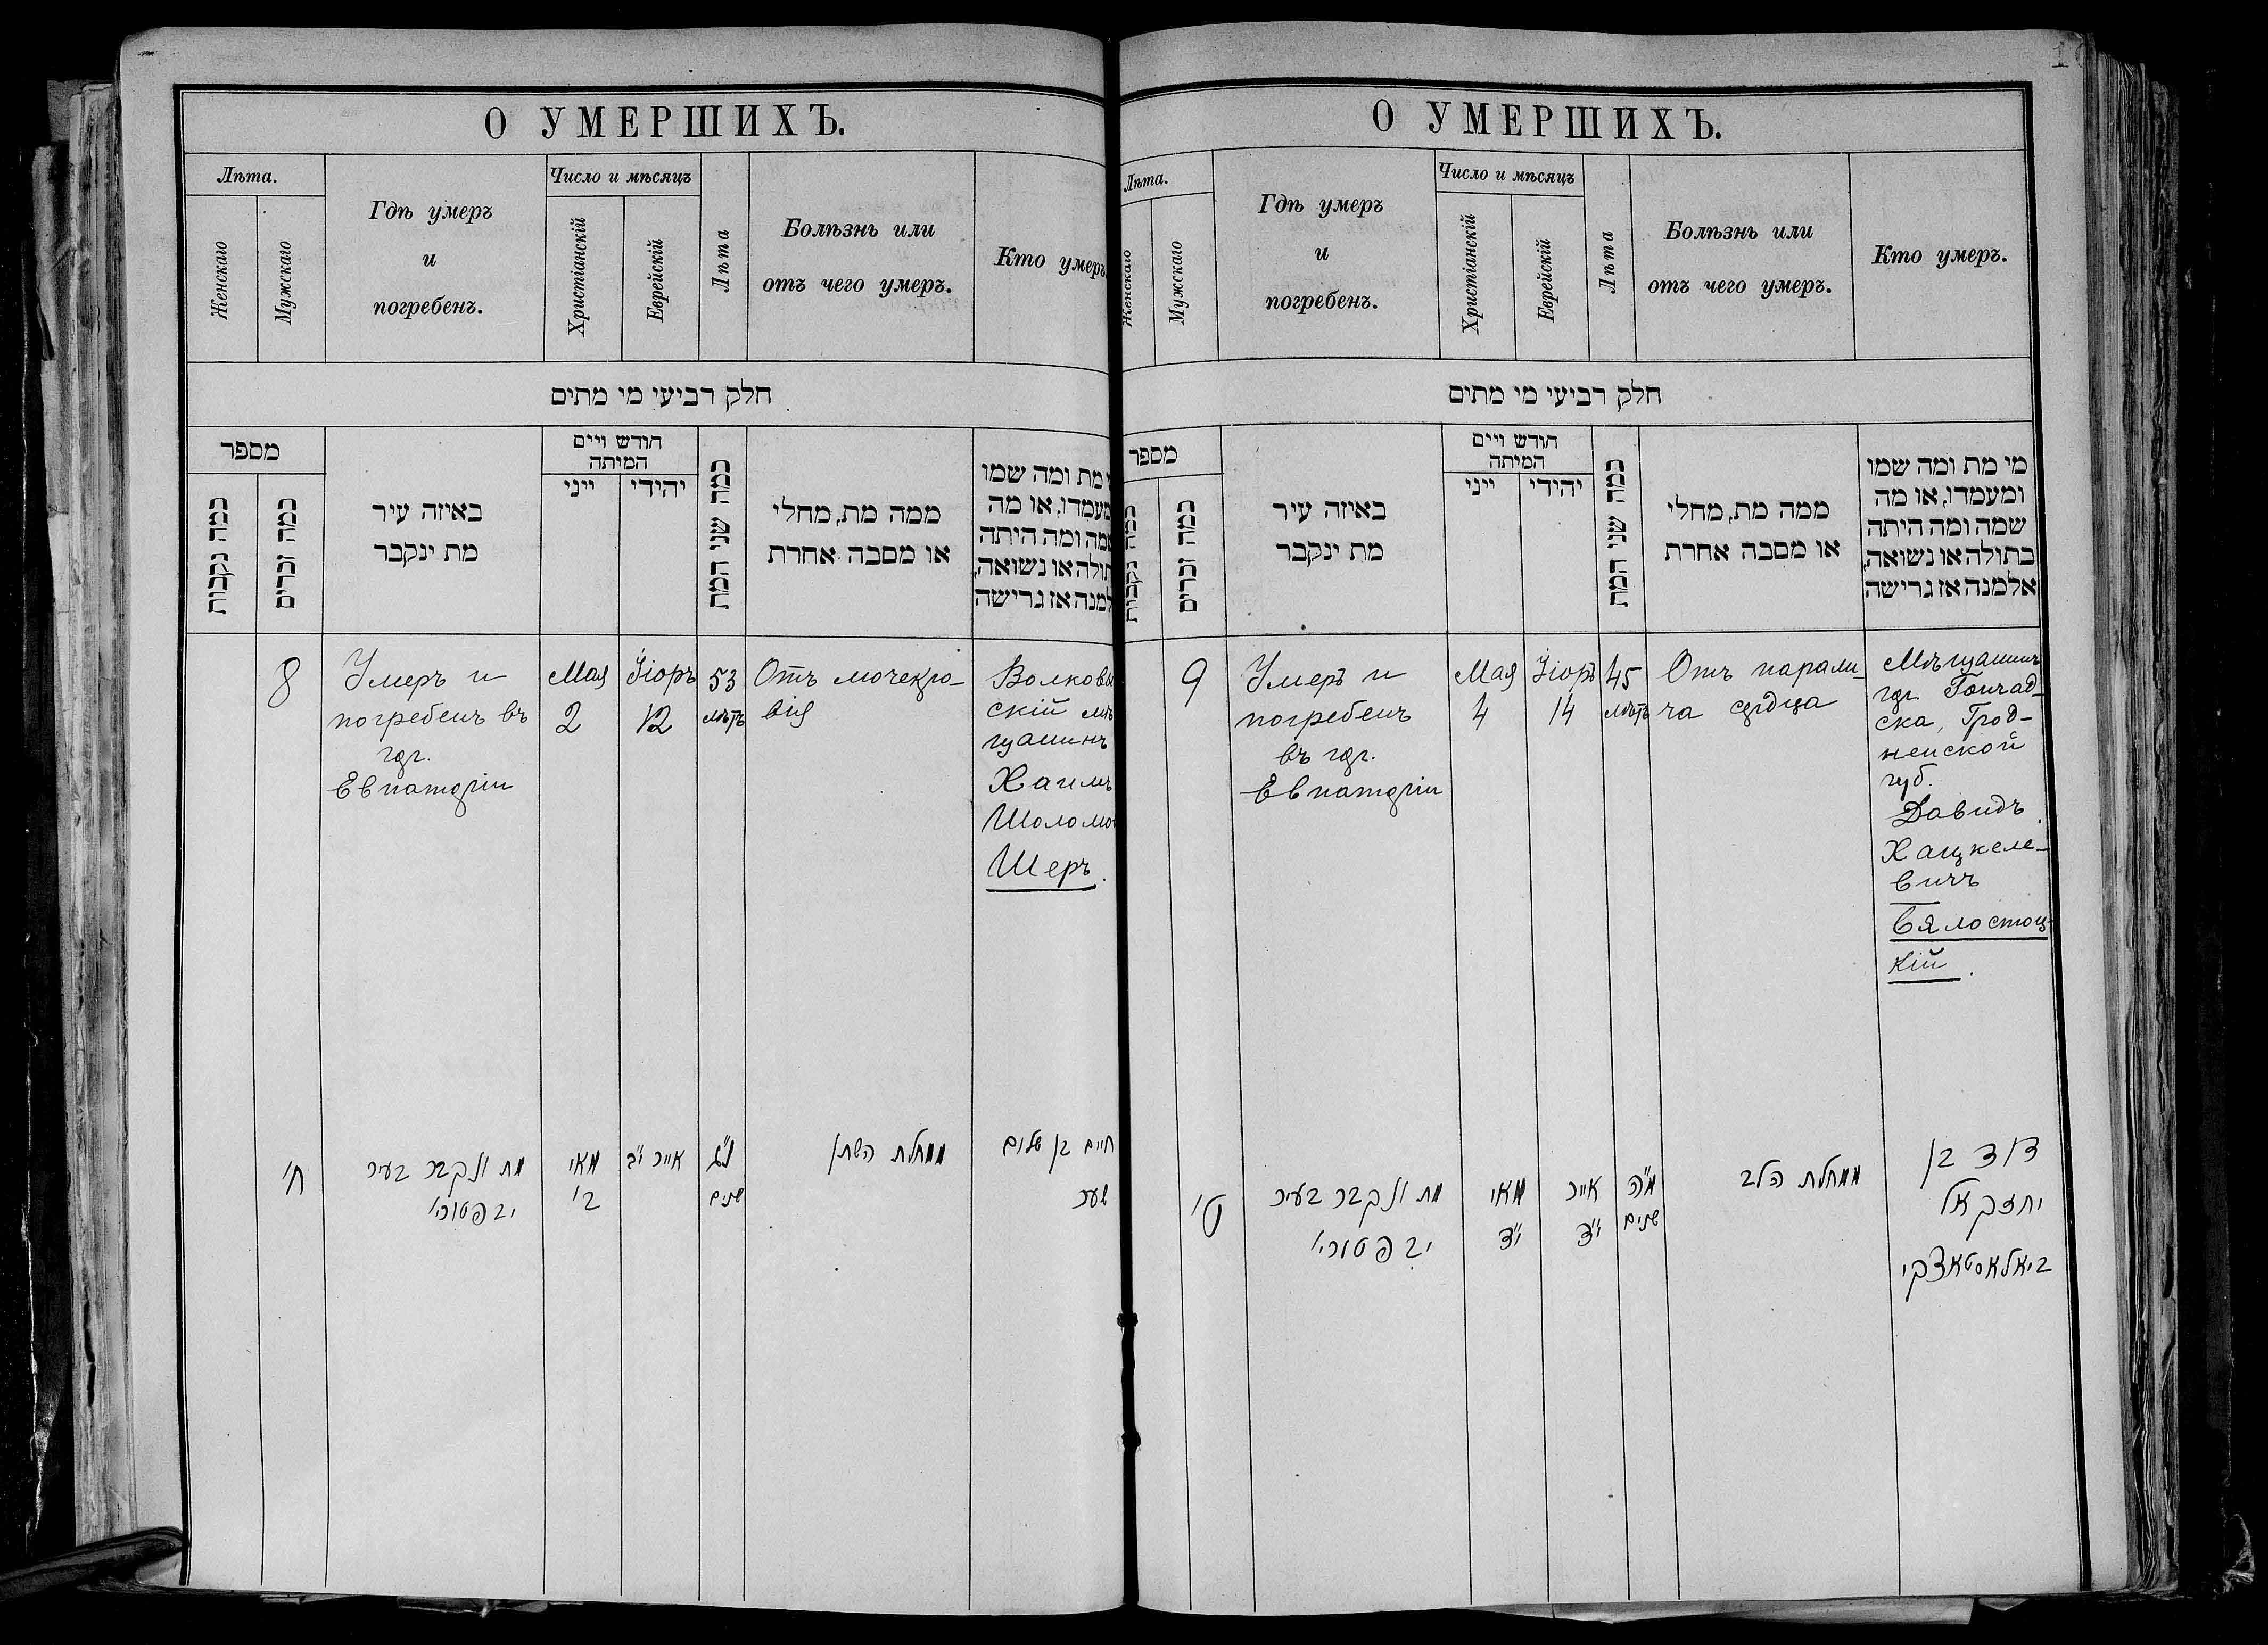 О УМЕРШИХЪ.
Лѣта.
Женскаго
Мужскаго
Гдѣ умеръ
и
погребенъ.
Число и мѣсяцъ
Христіанскій
Еврейскій
Лѣта
Болѣзнь или
отъ чего умеръ.
Кто умеръ.
חלק רביעי מי מתים
מספר
כמה נקבות
כמה זכרים
באיזה עיר
מת ינקבר
חודש ויים
המיתה
ייני
יהידי
כמה שני המת
ממה מת, מחלי
או מסבה אחרת
מת ומה שמו
מעמדו, או מה
שמה ומה היתה
תולה או נשואה,
למנה אז גרישה
8
Умеръ и
погребенъ въ
гор.
Евпаторіи
Мая
2
Іюръ
12
53
лѣтъ
Отъ мочекро-
вія
Волковы
скій мѣ
щанинъ
Хаимъ
Шоломо
Шеръ.
ח'
מת ונקבר בעיר
יבפטורי'
מאי
ב'
אייר י"ב
נ"ג
שנים
ממחלת השתן
חיים בן שלום
שער
1
О УМЕРШИХЪ.
Лѣта.
Женскаго
Мужскаго
Гдѣ умеръ
и
погребенъ.
Число и мѣсяцъ
Христіанскій
Еврейскій
Лѣта
Болѣзнь или
отъ чего умеръ.
Кто умеръ.
חלק רביעי מי מתים
מספר
כמה נקבות
כמה זכרים
באיזה עיר
מת ינקבר
חודש ויים
המיתה
ייני
יהידי
כמה שני המת
ממה מת, מחלי
או מסבה אחרת
מי מת ומה שמו
ומעמדו, או מה
שמה ומה היתה
בתולה או נשואה,
אלמנה אז גרישה
9
Умеръ и
погребенъ
въ гор.
Евпаторіи
Мая
4
Іюръ
14
45
лѣтъ
Отъ парали-
ча сердца
Мѣщанинъ
гор. Гончад-
ска, Грод-
ненской
губ.
Давидъ
Хацкеле-
вичъ
Бялостоц-
кій.
ט'
מת ונקבר בעיר
יבפטורי'
מאי
י"ד
אייר
י"ד
מ"ה
שנים
ממחלת הלב
דוד בן
יחזקאל
ביאלאסטאצקי